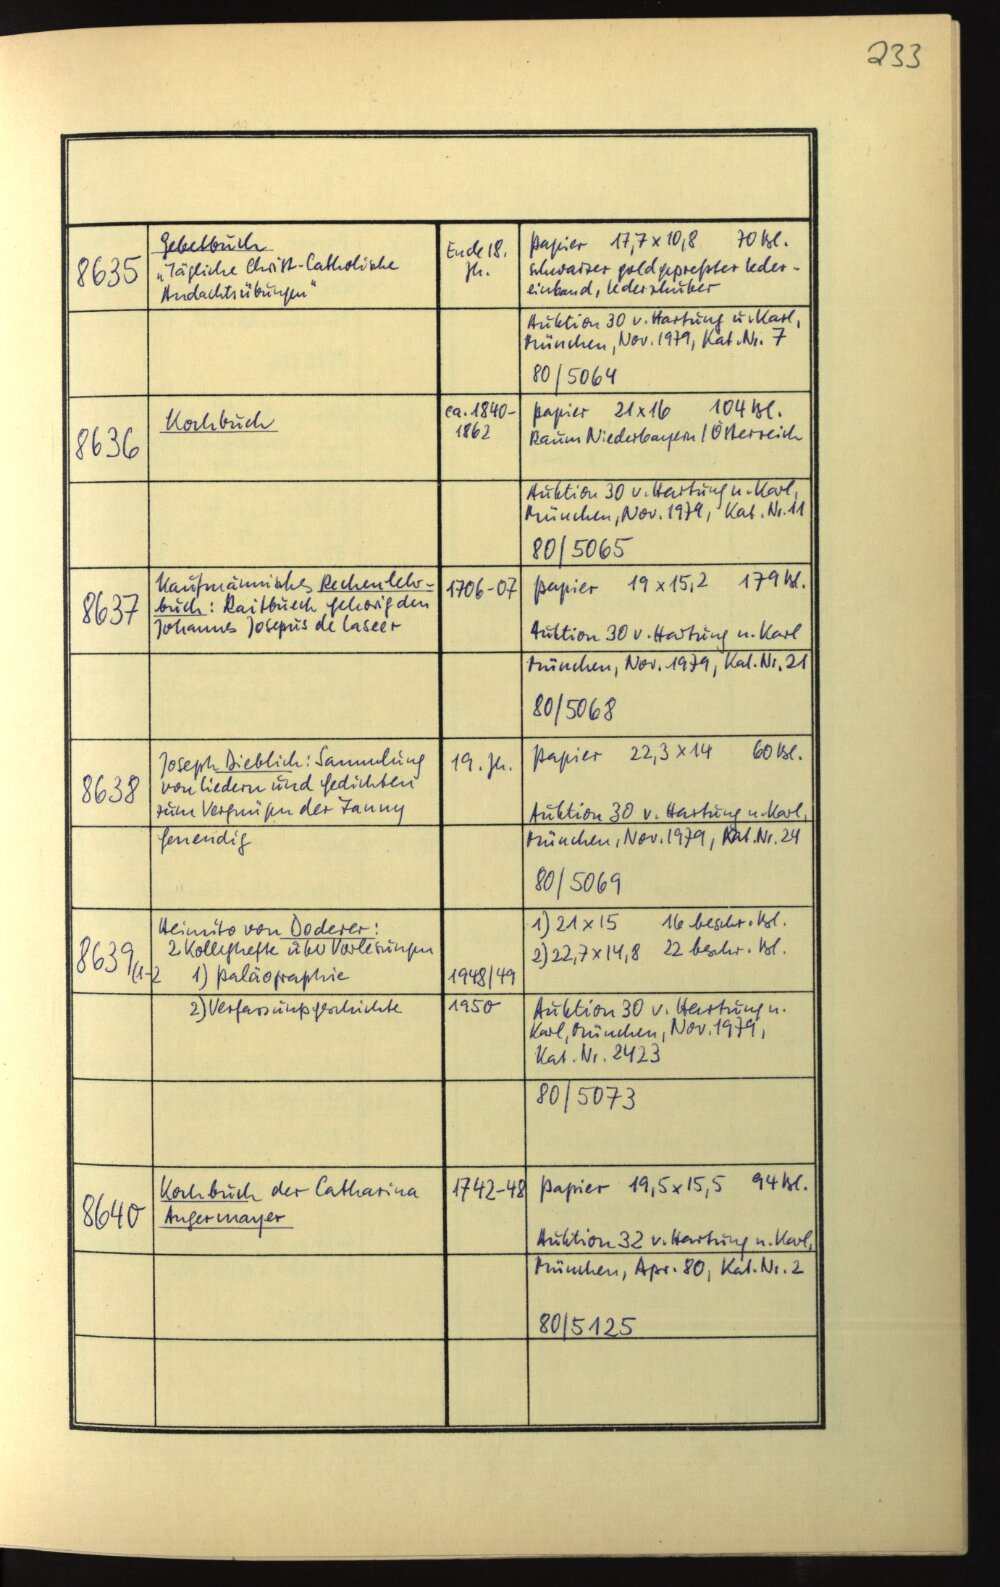 233
8635
Gebetbuch
„Tägliche Christ-Catholische
Andachtsübungen“
Ende 18.
Jh.
Papier 17,7 x 10,8 70 Bl.
schwarzer goldgepreßter Leder-
einband, Lederschuber
Auktion 30 v. Hartung u. Karl,
München, Nov. 1979, Kat. Nr. 7
80/5064
8636
Kochbuch
ca. 1840-
1862
Papier 21 x 16 104 Bl.
Raum Niederbayern / Österreich
Auktion 30 v. Hartung u. Karl,
München, Nov. 1979, Kat. Nr. 11
80/5065
8637
Kaufmännisches Rechenlehr-
buch: Raitbuech gehorig den
Johannes Josepus de Laseer
1706-07
Papier 19 x 15,2 179 Bl.
Auktion 30 v. Hartung u. Karl
München, Nov. 1979, Kat. Nr. 21
80/5068
8638
Joseph Dieblich: Sammlung
von Liedern und Gedichten
zum Vergnügen der Fanny
Henendig
19. Jh.
Papier 22,3 x 14 60 Bl.
Auktion 30 v. Hartung u. Karl,
München, Nov. 1979, Kat. Nr. 24
80/5069
8639/1-2
Heimito von Doderer:
2 Kolleghefte über Vorlesungen
1) Paläographie
2) Verfassungsgeschichte
1948/49
1950
1) 21 x 15 16 beschr. Bl.
2) 22,7 x 14,8 22 beschr. Bl.
Auktion 30 v. Hartung u.
Karl, München, Nov. 1979,
Kat. Nr. 2423
80/5073
8640
Kochbuch der Catharina
Angermayer
1742-48
Papier 19,5 x 15,5 94 Bl.
Auktion 32 v. Hartung u. Karl,
München, Apr. 80, Kat. Nr. 2
80/5125